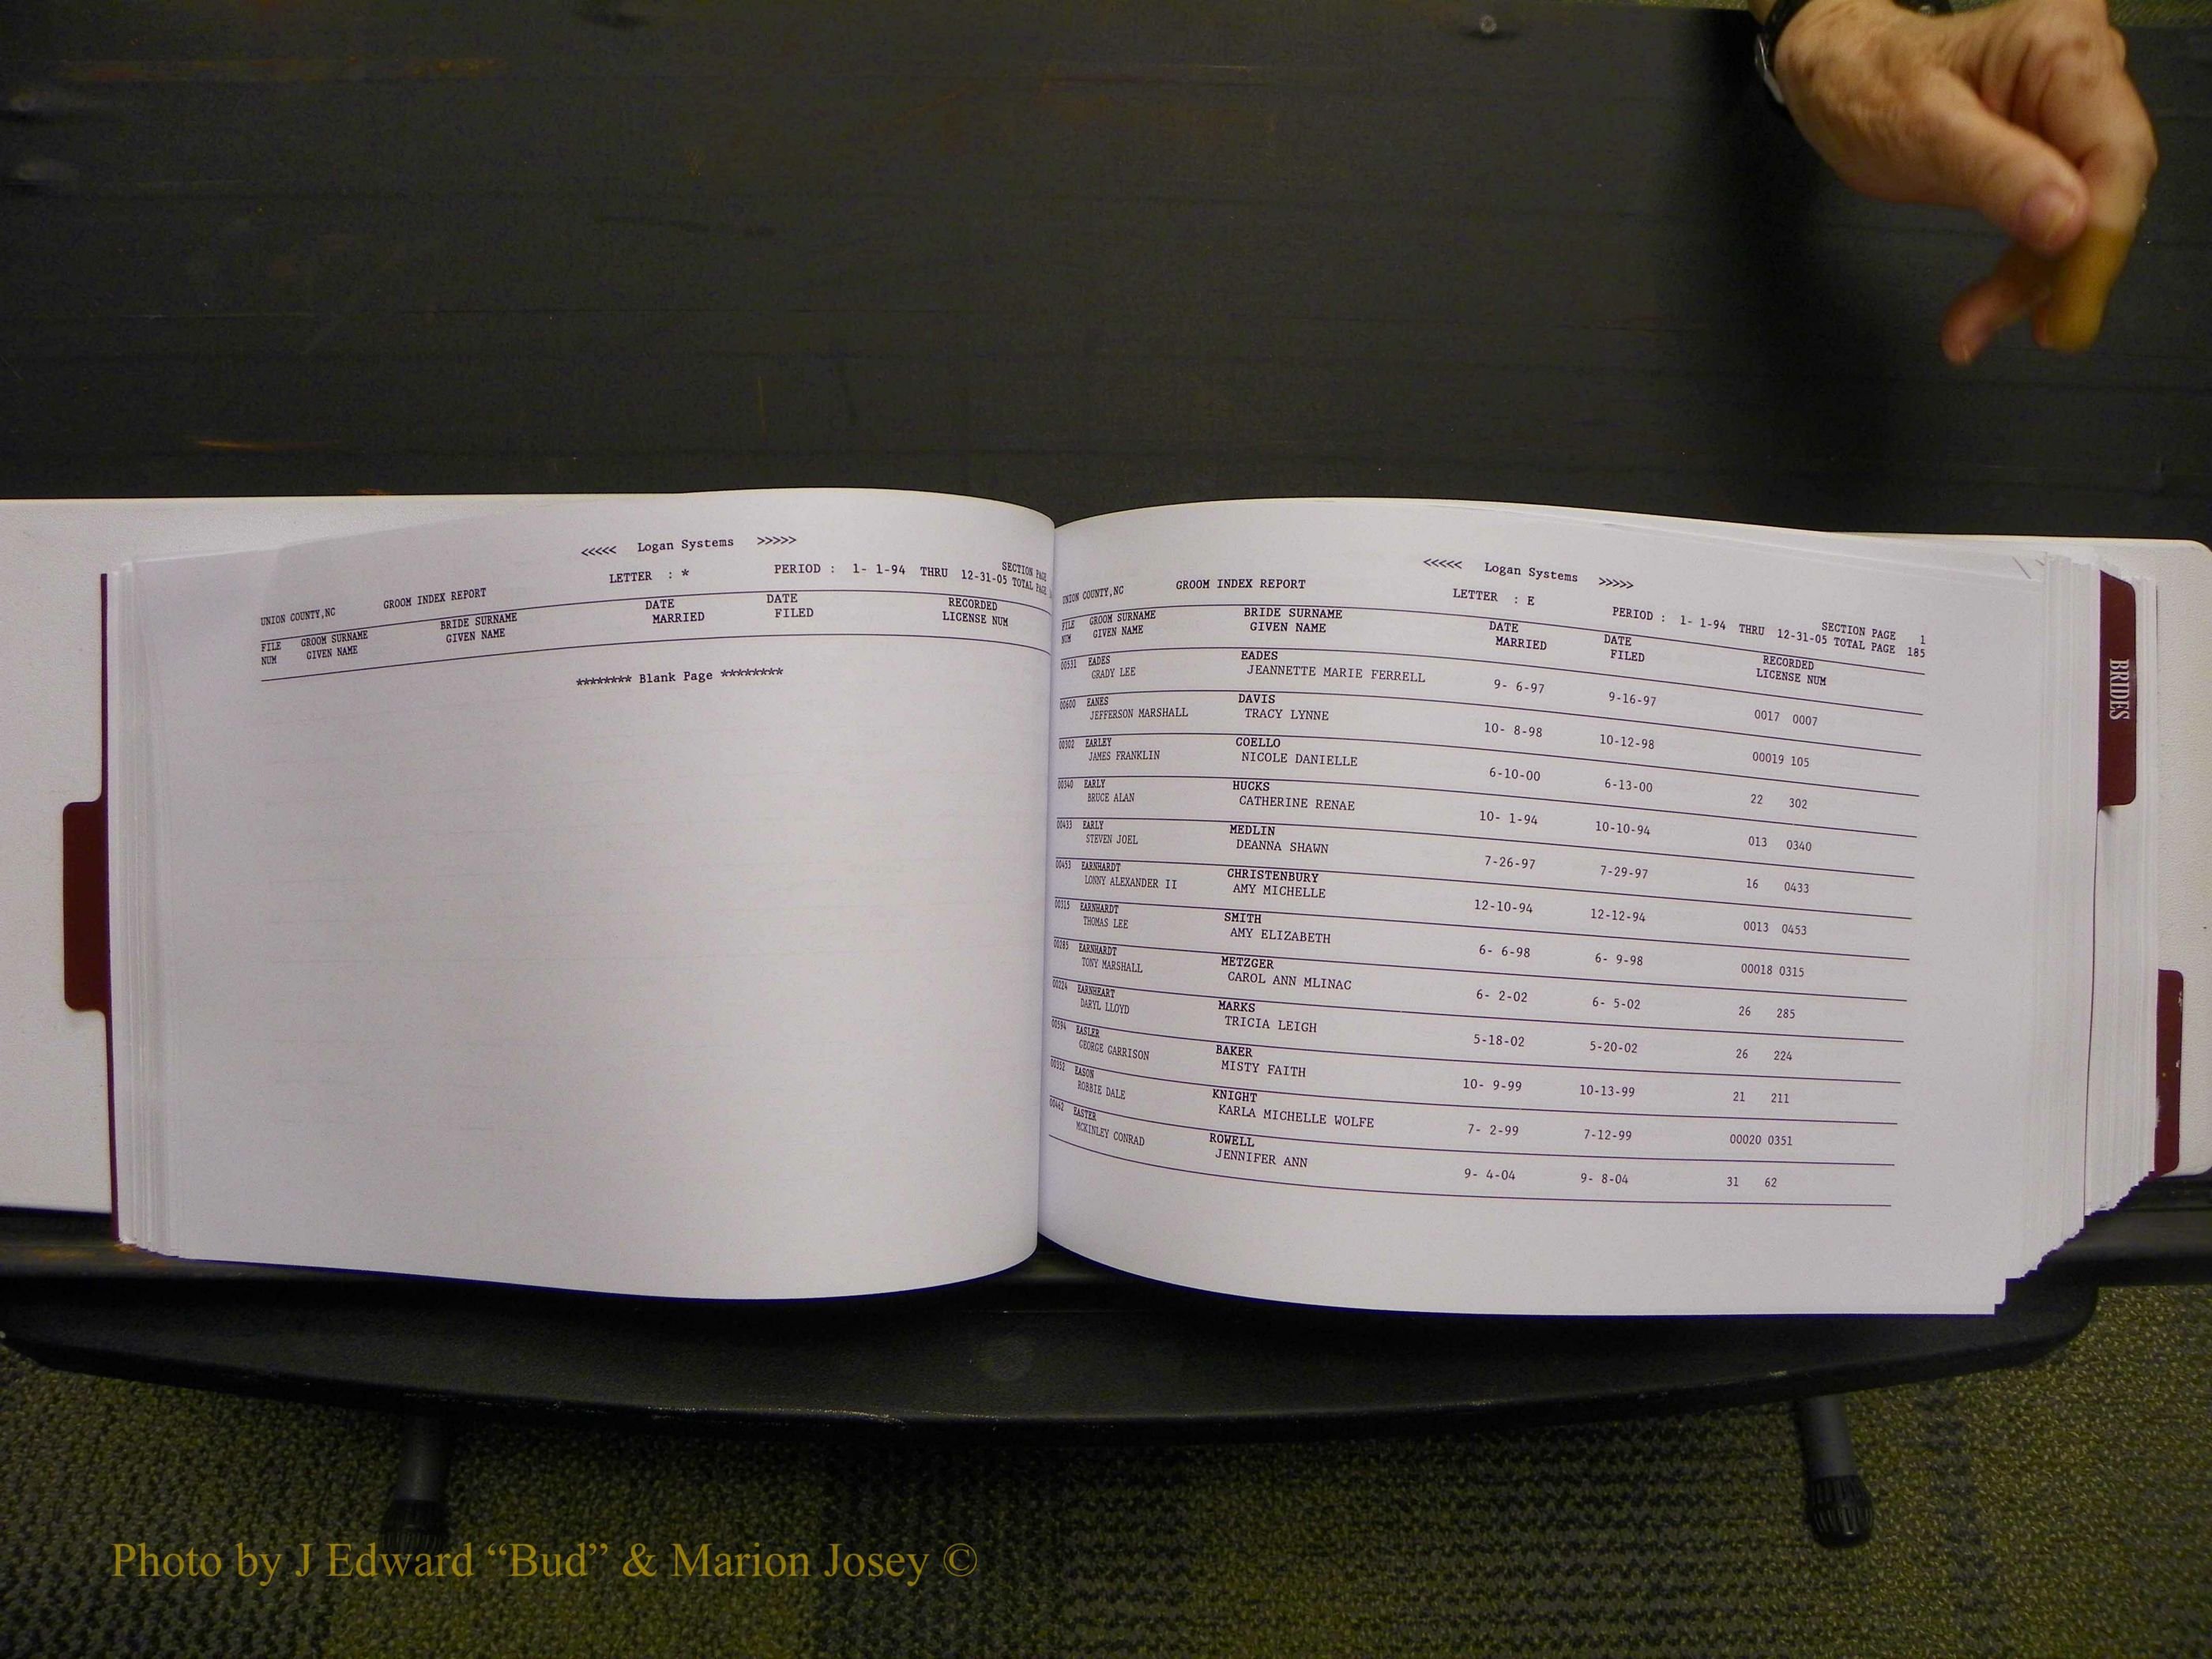 <<<<< Logan Systems >>>>>
UNION COUNTY,NC GROOM INDEX REPORT LETTER : * PERIOD : 1- 1-94 THRU 12-31-05 SECTION PAGE
TOTAL PAGE
FILE GROOM SURNAME BRIDE SURNAME DATE DATE RECORDED
NUM GIVEN NAME GIVEN NAME MARRIED FILED LICENSE NUM
******** Blank Page ********
<<<<< Logan Systems >>>>>
UNION COUNTY,NC GROOM INDEX REPORT LETTER : E PERIOD : 1- 1-94 THRU 12-31-05 SECTION PAGE 1
TOTAL PAGE 185
FILE GROOM SURNAME BRIDE SURNAME DATE DATE RECORDED
NUM GIVEN NAME GIVEN NAME MARRIED FILED LICENSE NUM
00531 EADES EADES
GRADY LEE JEANNETTE MARIE FERRELL 9- 6-97 9-16-97 0017 0007
00600 EANES DAVIS
JEFFERSON MARSHALL TRACY LYNNE 10- 8-98 10-12-98 00019 105
00302 EARLEY COELLO
JAMES FRANKLIN NICOLE DANIELLE 6-10-00 6-13-00 22 302
00340 EARLY HUCKS
BRUCE ALAN CATHERINE RENAE 10- 1-94 10-10-94 013 0340
00433 EARLY MEDLIN
STEVEN JOEL DEANNA SHAWN 7-26-97 7-29-97 16 0433
00453 EARNHARDT CHRISTENBURY
LONNY ALEXANDER II AMY MICHELLE 12-10-94 12-12-94 0013 0453
00315 EARNHARDT SMITH
THOMAS LEE AMY ELIZABETH 6- 6-98 6- 9-98 00018 0315
00285 EARNHARDT METZGER
TONY MARSHALL CAROL ANN MLINAC 6- 2-02 6- 5-02 26 285
00224 EARNHEART MARKS
DARYL LLOYD TRICIA LEIGH 5-18-02 5-20-02 26 224
00594 EASLER BAKER
GEORGE GARRISON MISTY FAITH 10- 9-99 10-13-99 21 211
00352 EASON KNIGHT
ROBBIE DALE KARLA MICHELLE WOLFE 7- 2-99 7-12-99 00020 0351
00462 EASTER ROWELL
MCKINLEY CONRAD JENNIFER ANN 9- 4-04 9- 8-04 31 62
BRIDES
Photo by J Edward “Bud” & Marion Josey ©